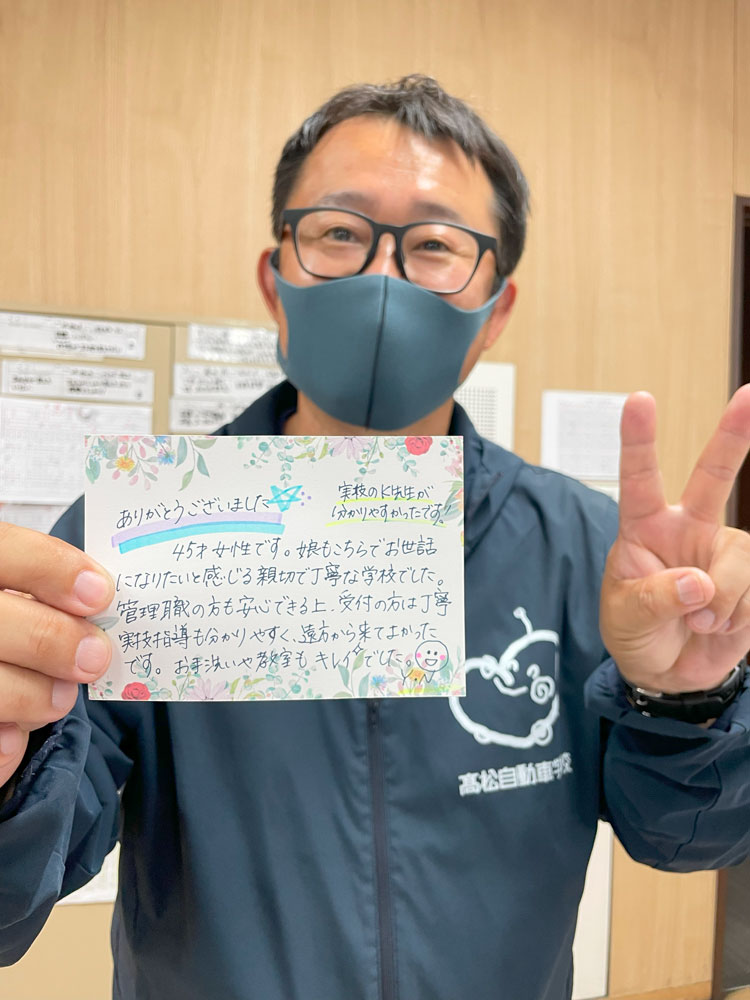 ありがとうございました
実技のK先生が
分かりやすかったです!!
45才女性です。娘もこちらでお世話
になりたいと感じる親切で丁寧な学校でした。
管理職の方も安心できる上、受付の方は丁寧
実技指導も分かりやすく、遠方から来てよかった
です。お手洗いや教室もキレイでした。
髙松自動車学校